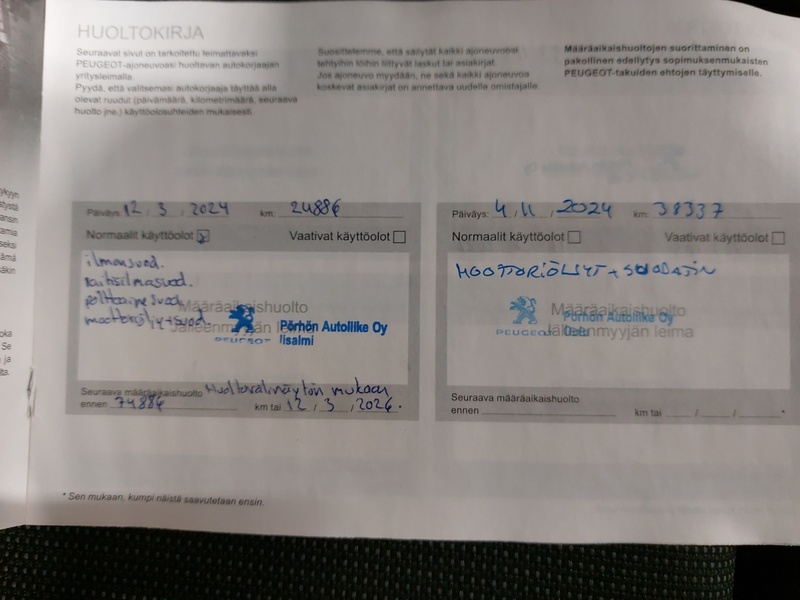 HUOLTOKIRJA
Seuraavat sivut on tarkoitettu leimattavaksi
PEUGEOT-ajoneuvoasi huoltavan autokorjaajan
yritysleimalla.
Pyydä, että valitsemasi autokorjaaja täyttää alla
olevat ruudut (päivämäärä, kilometrimäärä, seuraava
huolto jne.) käyttöolosuhteiden mukaisesti.
Suosittelemme, että säilytät kaikki ajoneuvoosi
tehtyihin töihin liittyvät laskut tai asiakirjat.
Jos ajoneuvo myydään, ne sekä kaikki ajoneuvoa
koskevat asiakirjat on annettava uudelle omistajalle.
Määräaikaishuoltojen suorittaminen on
pakollinen edellytys sopimuksenmukaisten
PEUGEOT-takuiden ehtojen täyttymiselle.
Päiväys: 12 , 3 , 2024 km: 24886
Normaalit käyttöolot Vaativat käyttöolot
ilmansuod.
raitisilmasuod.
polttoainesuod.
moottoriöljy+suod.
Määräaikaishuolto
Jälleenmyyjän leima
PEUGEOT
Pörhön Autoliike Oy
Iisalmi
Seuraava määräaikaishuolto Huoltovälinäytön mukaan
ennen 74886 km tai 12 , 3 , 2026 .
Päiväys: 4 , 11 , 2024 km: 38337
Normaalit käyttöolot Vaativat käyttöolot
MOOTTORIÖLJYT + SUODATIN
Määräaikaishuolto
Jälleenmyyjän leima
PEUGEOT
Pörhön Autoliike Oy
Oulu
Seuraava määräaikaishuolto
ennen km tai / / *
* Sen mukaan, kumpi näistä saavutetaan ensin.